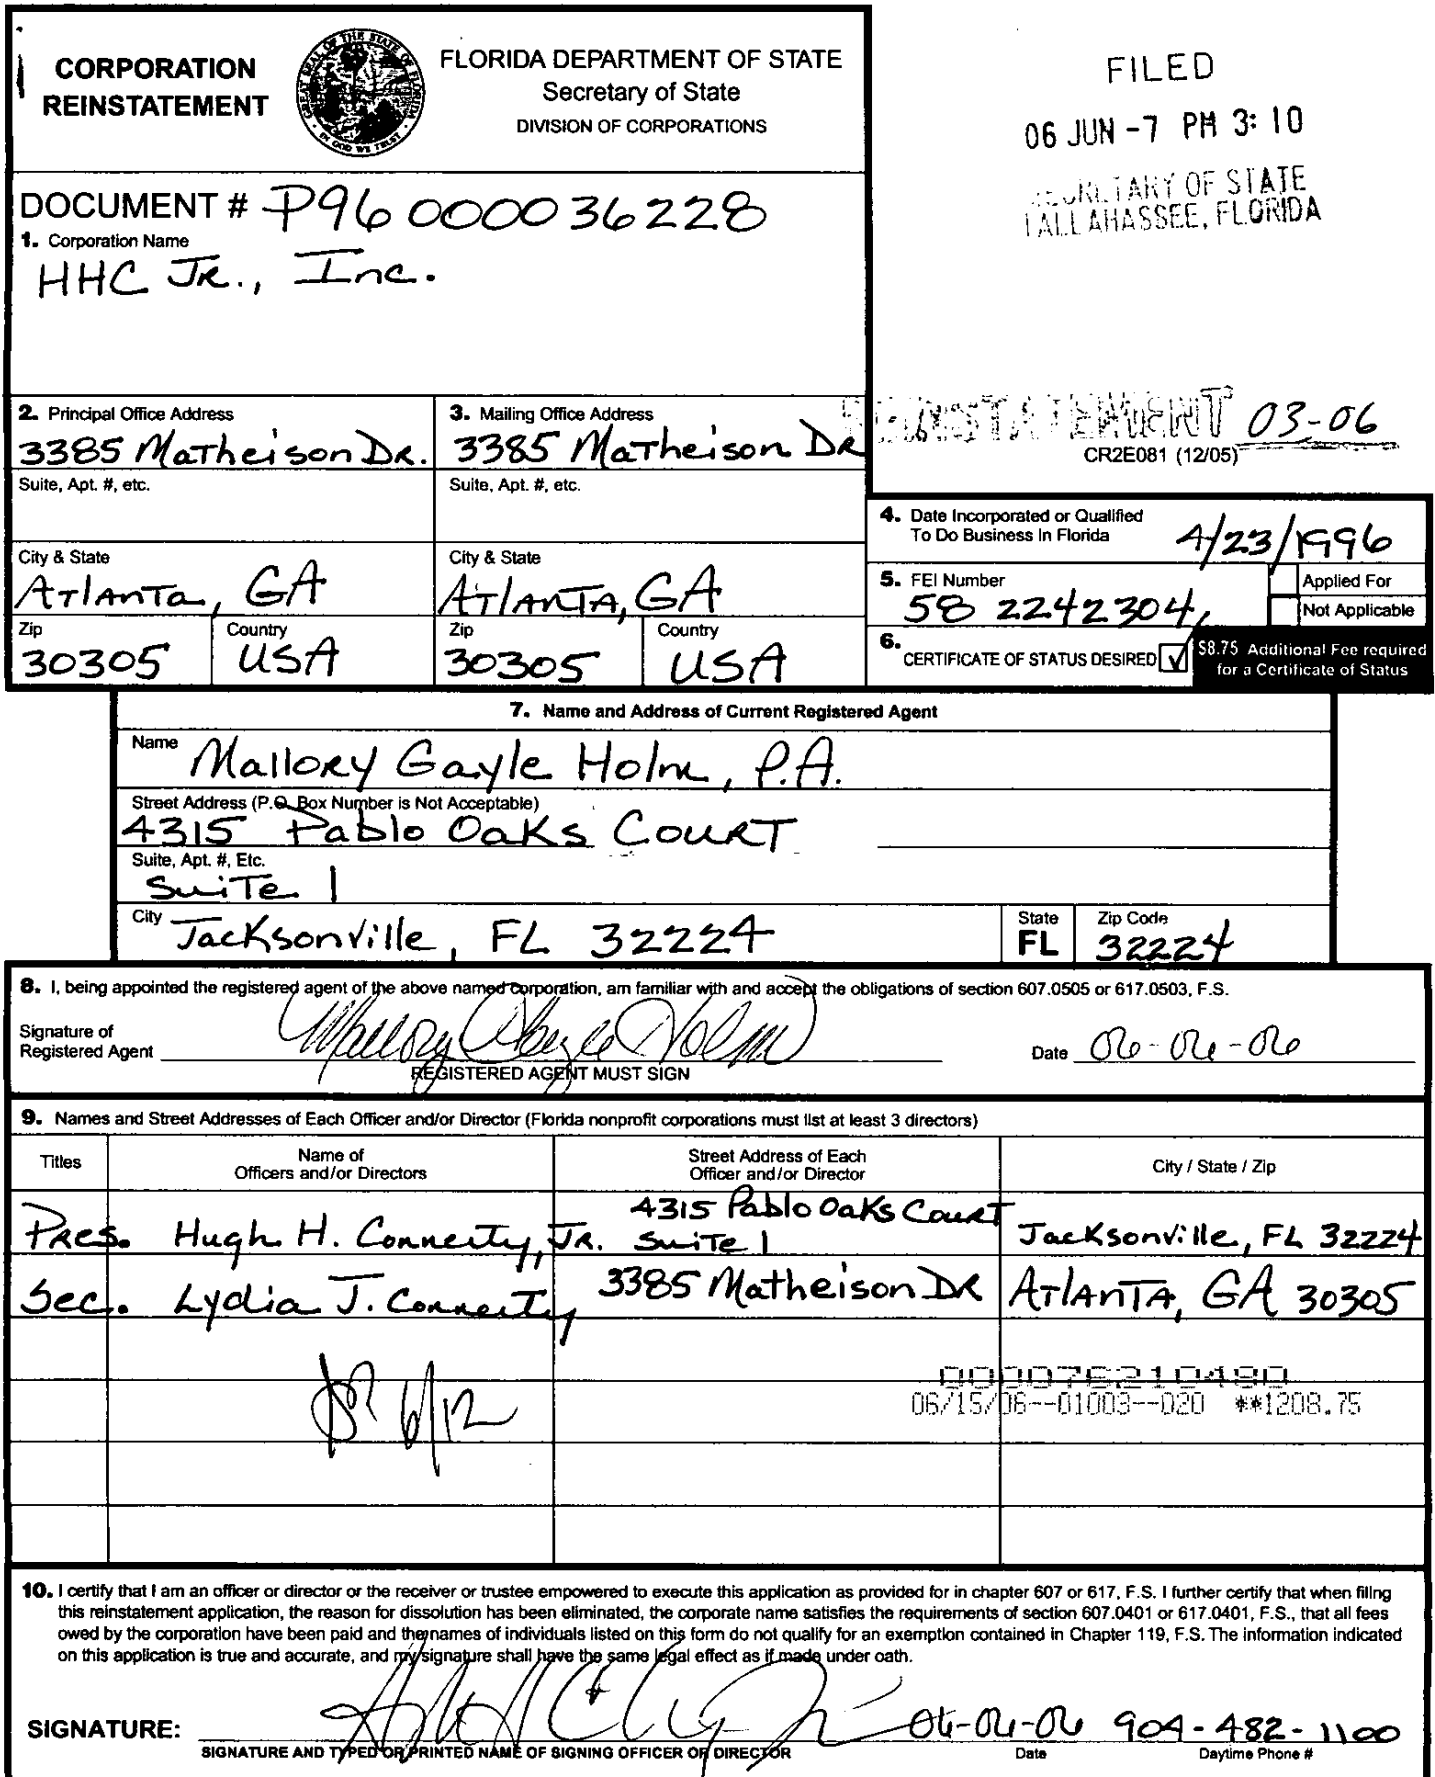 CORPORATION
REINSTATEMENT
GREAT SEAL OF THE STATE OF FLORIDA
IN GOD WE TRUST
FLORIDA DEPARTMENT OF STATE
Secretary of State
DIVISION OF CORPORATIONS
FILED
06 JUN -7 PM 3:10
SECRETARY OF STATE
TALLAHASSEE, FLORIDA
DOCUMENT # P96000036228
1. Corporation Name
HHC JR., Inc.
REINSTATEMENT 03-06
CR2E081 (12/05)
2. Principal Office Address
3385 Matheison DR.
Suite, Apt. #, etc.
City & State
Atlanta, GA
Zip
30305
Country
USA
3. Mailing Office Address
3385 Matheison DR
Suite, Apt. #, etc.
City & State
Atlanta, GA
Zip
30305
Country
USA
4. Date Incorporated or Qualified
To Do Business In Florida
4/23/1996
5. FEI Number
58 2242304
Applied For
Not Applicable
6. CERTIFICATE OF STATUS DESIRED ✓
$8.75 Additional Fee required
for a Certificate of Status
7. Name and Address of Current Registered Agent
Name
Mallory Gayle Holm, P.A.
Street Address (P.O. Box Number is Not Acceptable)
4315 Pablo Oaks Court
Suite, Apt. #, Etc.
Suite 1
City
Jacksonville, FL 32224
State
FL
Zip Code
32224
8. I, being appointed the registered agent of the above named corporation, am familiar with and accept the obligations of section 607.0505 or 617.0503, F.S.
Signature of
Registered Agent
Mallory Gayle Holm
REGISTERED AGENT MUST SIGN
Date 06-06-06
9. Names and Street Addresses of Each Officer and/or Director (Florida nonprofit corporations must list at least 3 directors)
Titles
Name of
Officers and/or Directors
Street Address of Each
Officer and/or Director
City / State / Zip
Pres. Hugh H. Connerty, JR. 4315 Pablo Oaks Court
Suite 1 Jacksonville, FL 32224
Sec. Lydia J. Connerty 3385 Matheison DR Atlanta, GA 30305
6/12
000076210480
06/15/06--01003--020 **1208.75
10. I certify that I am an officer or director or the receiver or trustee empowered to execute this application as provided for in chapter 607 or 617, F.S. I further certify that when filing
this reinstatement application, the reason for dissolution has been eliminated, the corporate name satisfies the requirements of section 607.0401 or 617.0401, F.S., that all fees
owed by the corporation have been paid and the names of individuals listed on this form do not qualify for an exemption contained in Chapter 119, F.S. The information indicated
on this application is true and accurate, and my signature shall have the same legal effect as if made under oath.
SIGNATURE:
06-06-06 904-482-1100
SIGNATURE AND TYPED OR PRINTED NAME OF SIGNING OFFICER OR DIRECTOR
Date
Daytime Phone #